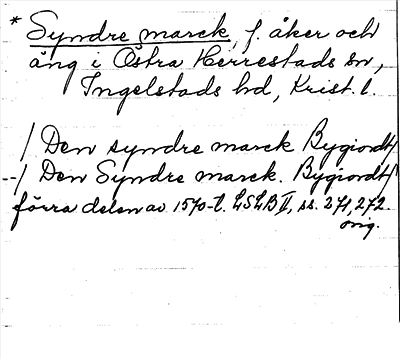 * Syndre marck, f. åker och
äng i Östra Herrestads sn,
Ingelstads hd, Krist. l.
/ Den syndre marck Bygiordt/
--/ Den Syndre marck. Bygiordt/
förra delen av 1570-t. LSLB II, ss. 271, 272.
orig.